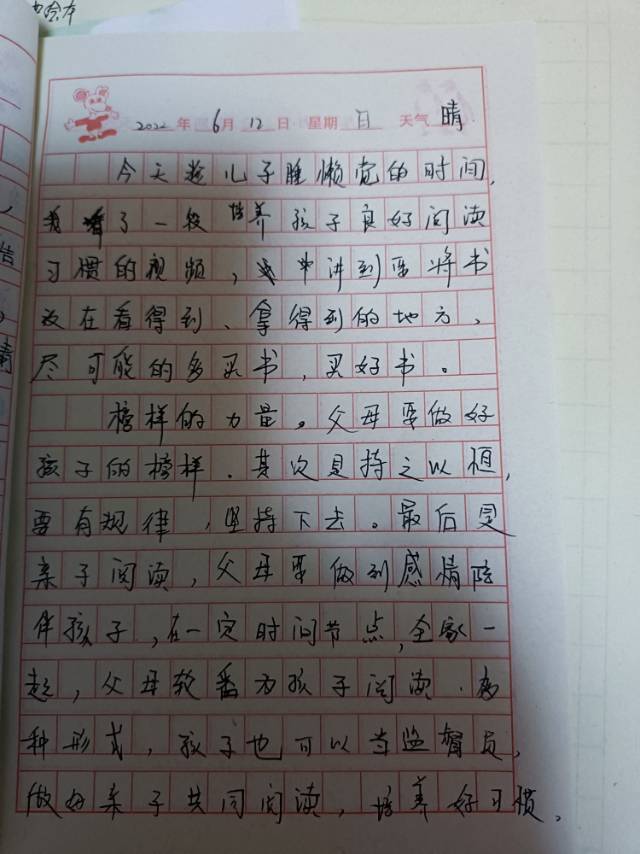 2022年6月12日 星期日 天气晴
今天趁儿子睡懒觉的时间,
我看了一段培养孩子良好阅读
习惯的视频,讲到要将书
放在看得到、拿得到的地方,
尽可能的多买书,买好书。
榜样的力量。父母要做好
孩子的榜样.其次是持之以恒,
要有规律,坚持下去。最后是
亲子阅读,父母要做到感情陪
伴孩子,在一定时间节点,全家一
起,父母轮番为孩子阅读.多
种形式,孩子也可以当监督员,
做好亲子共同阅读,培养好习惯。